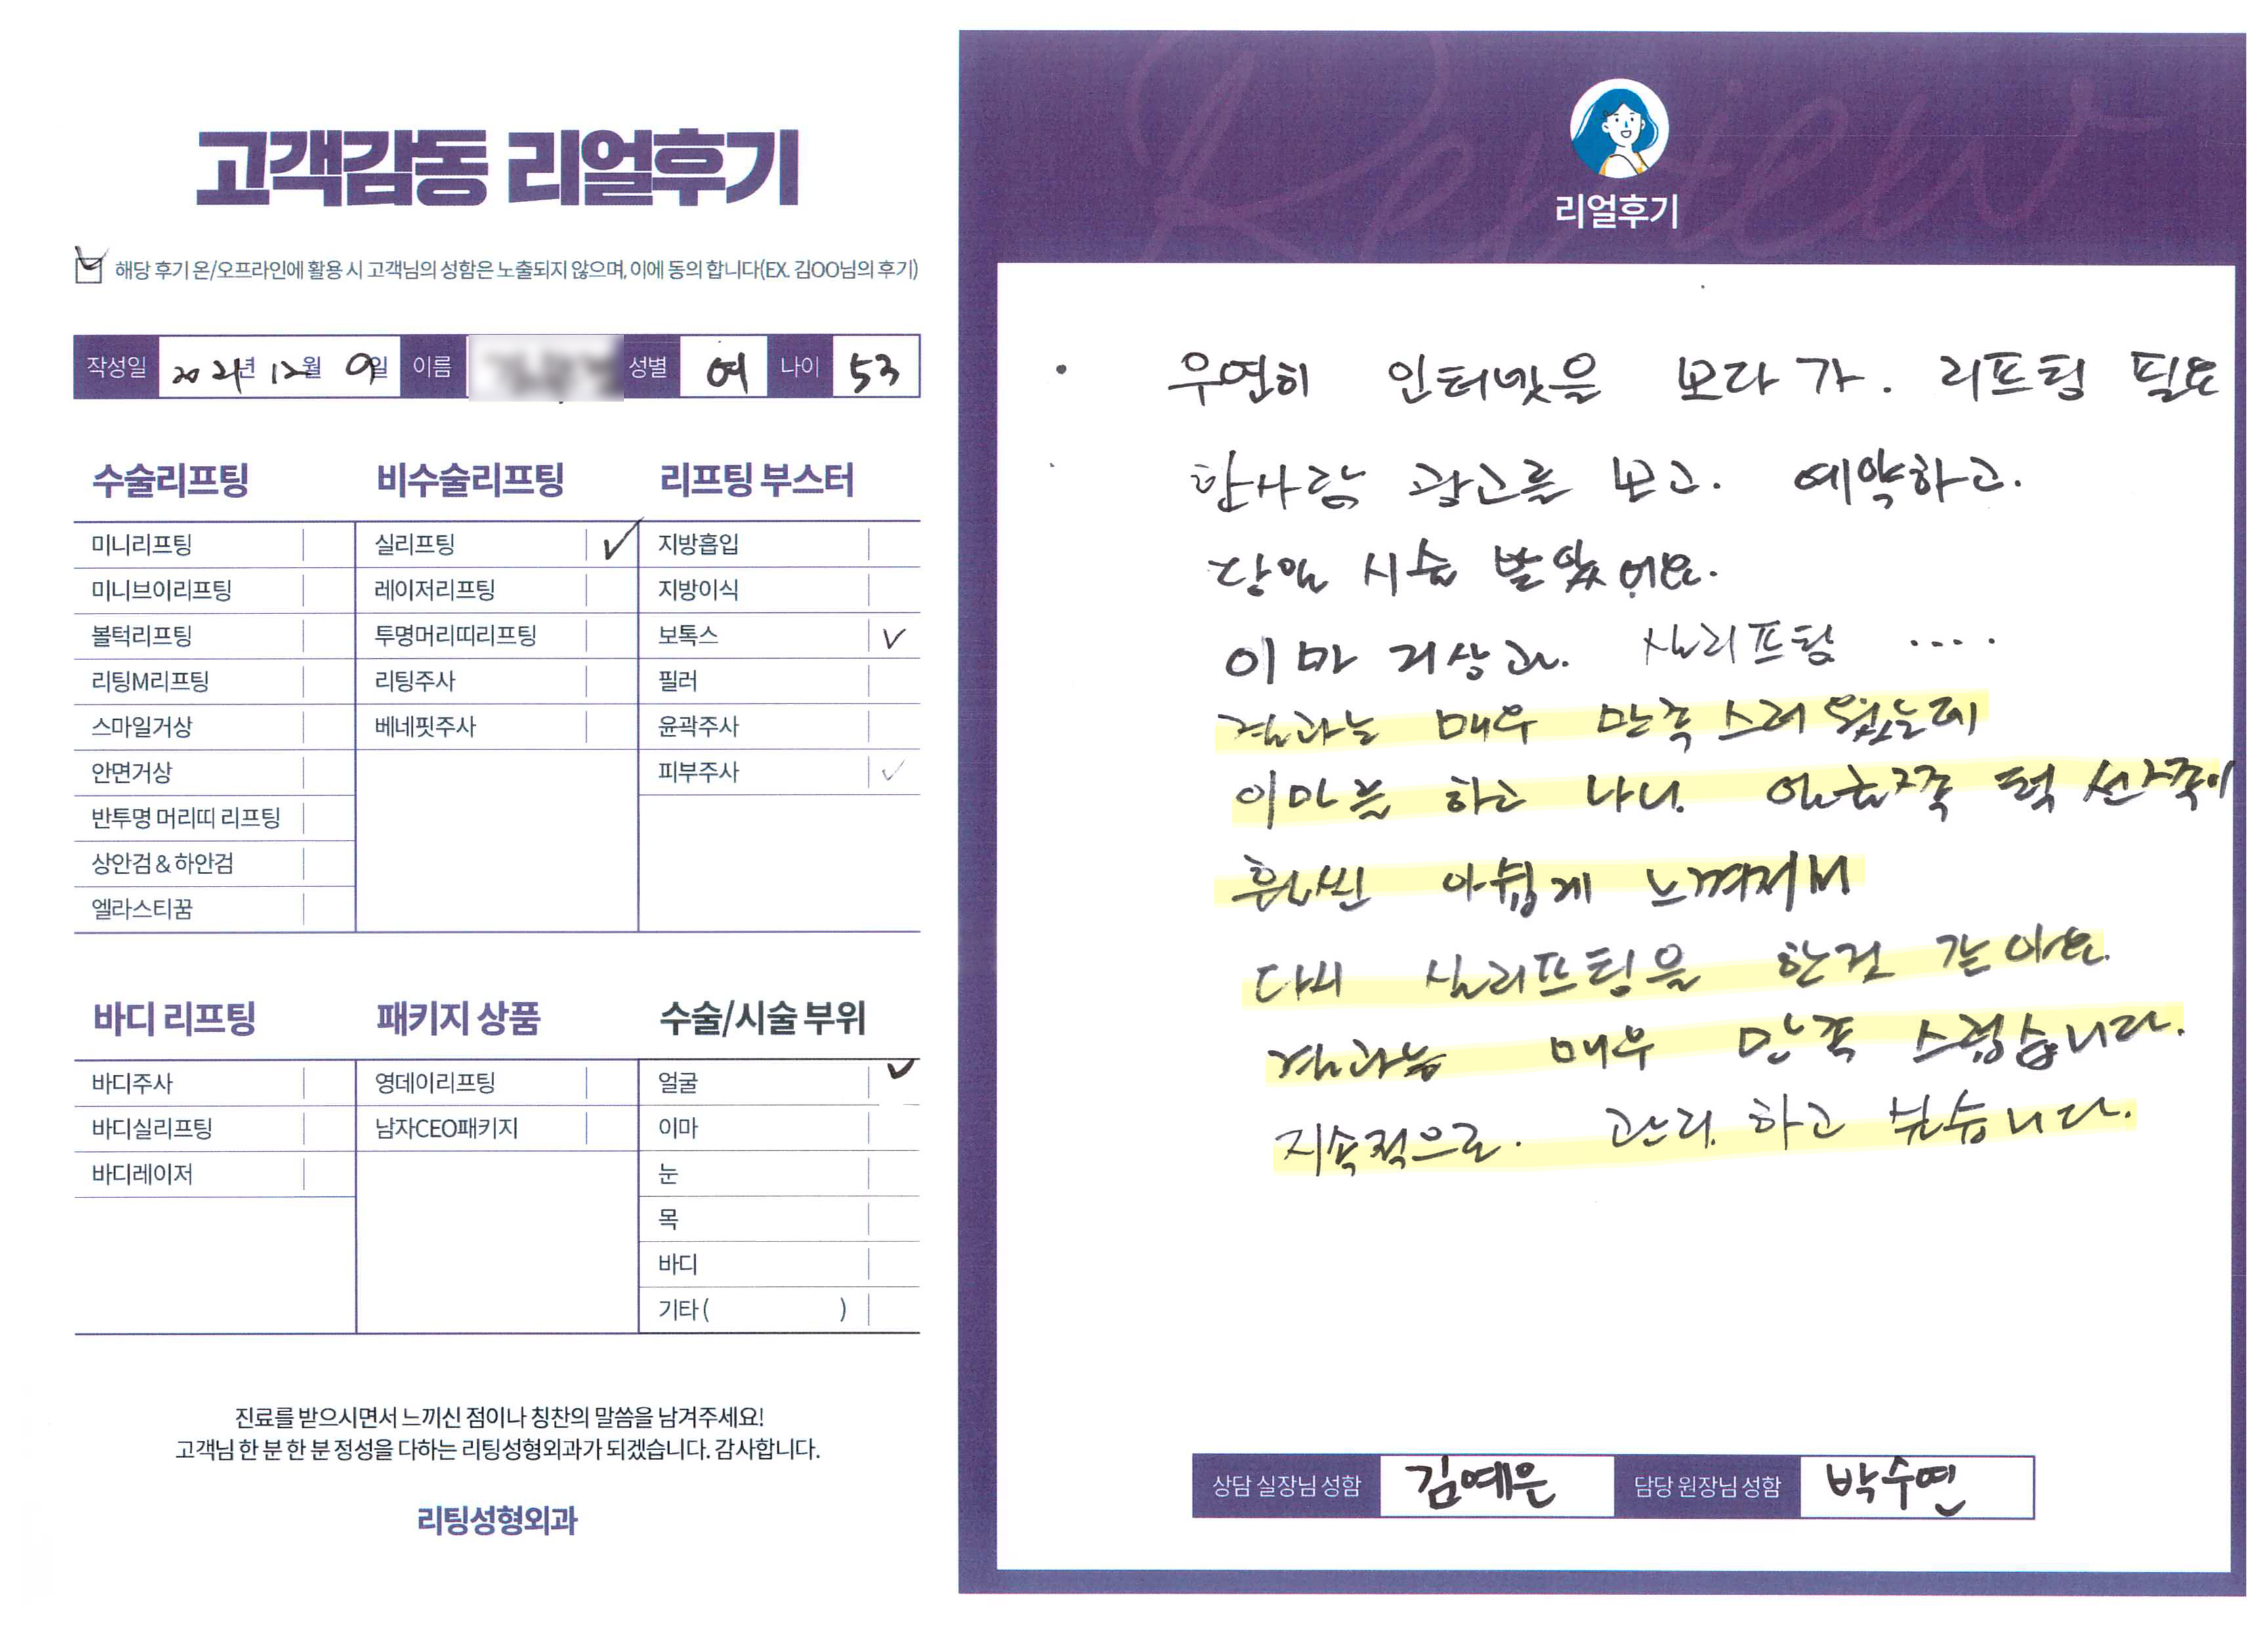 고객감동 리얼후기
해당 후기 온/오프라인에 활용 시 고객님의 성함은 노출되지 않으며, 이에 동의 합니다(EX. 김OO님의 후기)
작성일 2021년 12월 9일 이름 성별 여 나이 53
수술리프팅
미니리프팅
미니브이리프팅
볼턱리프팅
리팅M리프팅
스마일거상
안면거상
반투명 머리띠 리프팅
상안검 & 하안검
엘라스티꿈
비수술리프팅
실리프팅 ✓
레이저리프팅
투명머리띠리프팅
리팅주사
베네핏주사
리프팅 부스터
지방흡입
지방이식
보톡스 ✓
필러
윤곽주사
피부주사 ✓
바디 리프팅
바디주사
바디실리프팅
바디레이저
패키지 상품
영데이리프팅
남자CEO패키지
수술/시술 부위
얼굴 ✓
이마
눈
목
바디
기타 ( )
진료를 받으시면서 느끼신 점이나 칭찬의 말씀을 남겨주세요!
고객님 한 분 한 분 정성을 다하는 리팅성형외과가 되겠습니다. 감사합니다.
리팅성형외과
Review
리얼후기
우연히 인터넷을 보다가. 리프팅 필요
한사람 광고를 보고. 예약하고.
당일 시술 받았어요.
이마 거상과. 실리프팅 ....
결과는 매우 만족스러웠는데
이마를 하고 나니. 얼굴쪽 턱 선쪽이
훨씬 아쉽게 느껴져서
다시 실리프팅을 한것 같아요.
결과는 매우 만족 스럽습니다.
지속적으로. 관리. 하고 싶습니다.
상담 실장님 성함 김예은 담당 원장님 성함 박수연